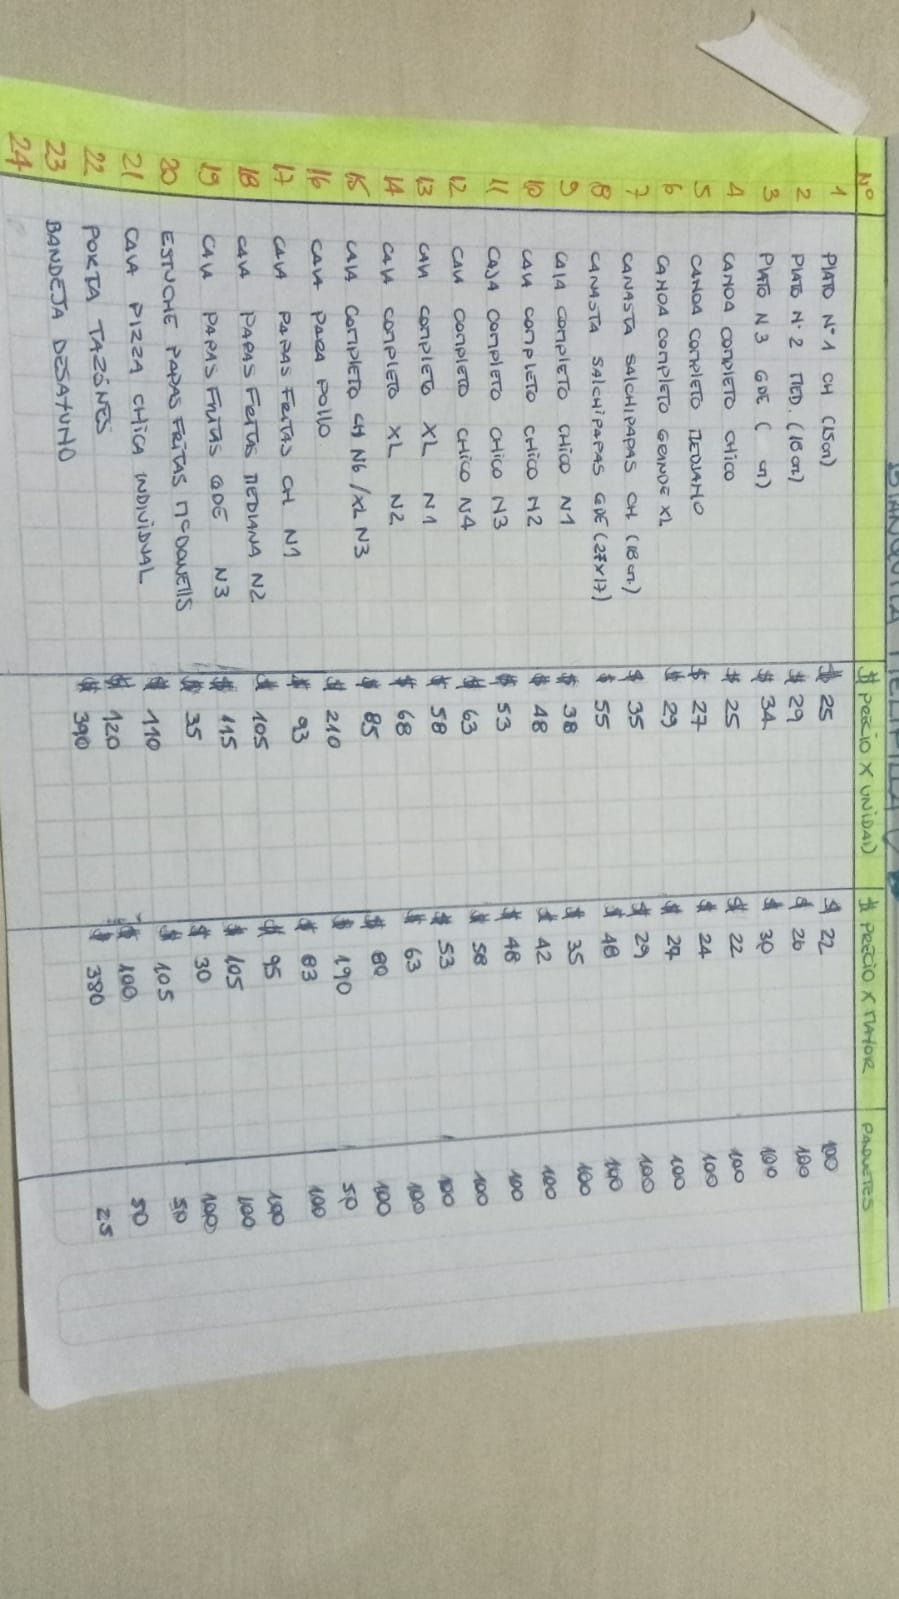 BLANQUITA MELIPILLA
Nº $ PRECIO X UNIDAD $ PRECIO X MAYOR PAQUETES
1 PLATO Nº 1 CH (15cm) $ 25 $ 22 100
2 PLATO Nº 2 MED. (18cm) $ 29 $ 26 100
3 PLATO N 3 GDE ( cm) $ 34 $ 30 100
4 CANOA COMPLETO CHICO $ 25 $ 22 100
5 CANOA COMPLETO MEDIANO $ 27 $ 24 100
6 CANOA COMPLETO GRANDE XL $ 29 $ 27 100
7 CANASTA SALCHIPAPAS CH (18cm.) $ 35 $ 29 100
8 CANASTA SALCHIPAPAS GDE (27x17) $ 55 $ 48 100
9 CAJA COMPLETO CHICO N1 $ 38 $ 35 100
10 CAJA COMPLETO CHICO N2 $ 48 $ 42 100
11 CAJA COMPLETO CHICO N3 $ 53 $ 48 100
12 CAJA COMPLETO CHICO N4 $ 63 $ 58 100
13 CAJA COMPLETO XL N1 $ 58 $ 53 100
14 CAJA COMPLETO XL N2 $ 68 $ 63 100
15 CAJA COMPLETO CH N6 / XL N3 $ 85 $ 80 100
16 CAJA PARA POLLO $ 210 $ 190 50
17 CAJA PAPAS FRITAS CH N1 $ 93 $ 83 100
18 CAJA PAPAS FRITAS MEDIANA N2 $ 105 $ 95 100
19 CAJA PAPAS FRITAS GDE N3 $ 115 $ 105 100
20 ESTUCHE PAPAS FRITAS McDONELLS $ 35 $ 30 100
21 CAJA PIZZA CHICA INDIVIDUAL $ 110 $ 105 50
22 PORTA TAZONES $ 120 $ 100 50
23 BANDEJA DESAYUNO $ 390 $ 380 25
24